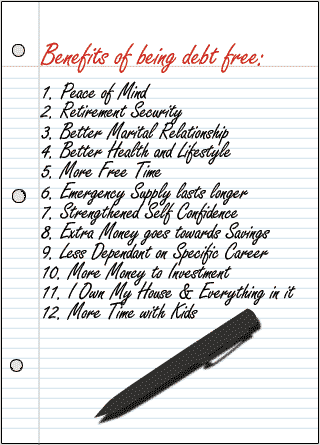 Benefits of being debt free:
1. Peace of Mind
2. Retirement Security
3. Better Marital Relationship
4. Better Health and Lifestyle
5. More Free Time
6. Emergency Supply lasts longer
7. Strengthened Self Confidence
8. Extra Money goes towards Savings
9. Less Dependant on Specific Career
10. More Money to Investment
11. I Own My House & Everything in it
12. More Time with Kids